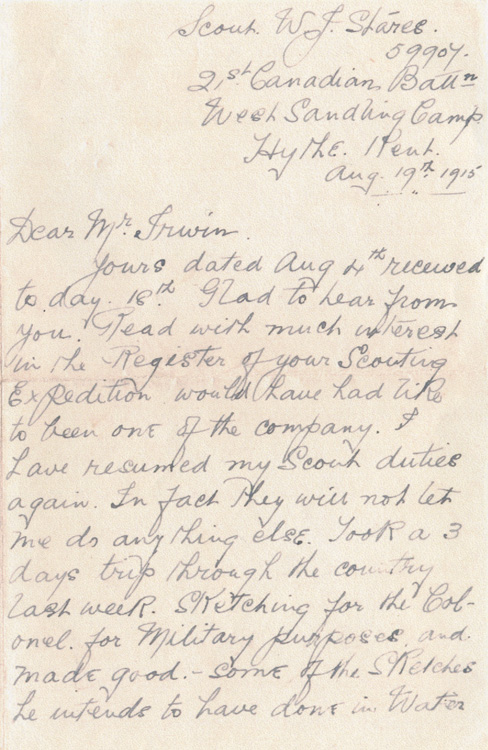 Scout. W. J. Stares.
59907.
21st Canadian Battn
West Sandling Camp
Hythe. Kent.
Aug. 19th 1915
Dear Mr. Irwin.
Yours dated Aug 4th received
to day. 18th Glad to hear from
you. Read with much interest
in the Register of your Scouting
Expedition would have had like
to been one of the company. I
have resumed my Scout duties
again. In fact they will not let
me do anything else. Took a 3
days trip through the country
last week. Sketching for the Col-
onel. for Military purposes and.
made good. - some of the Sketches
he intends to have done in Water